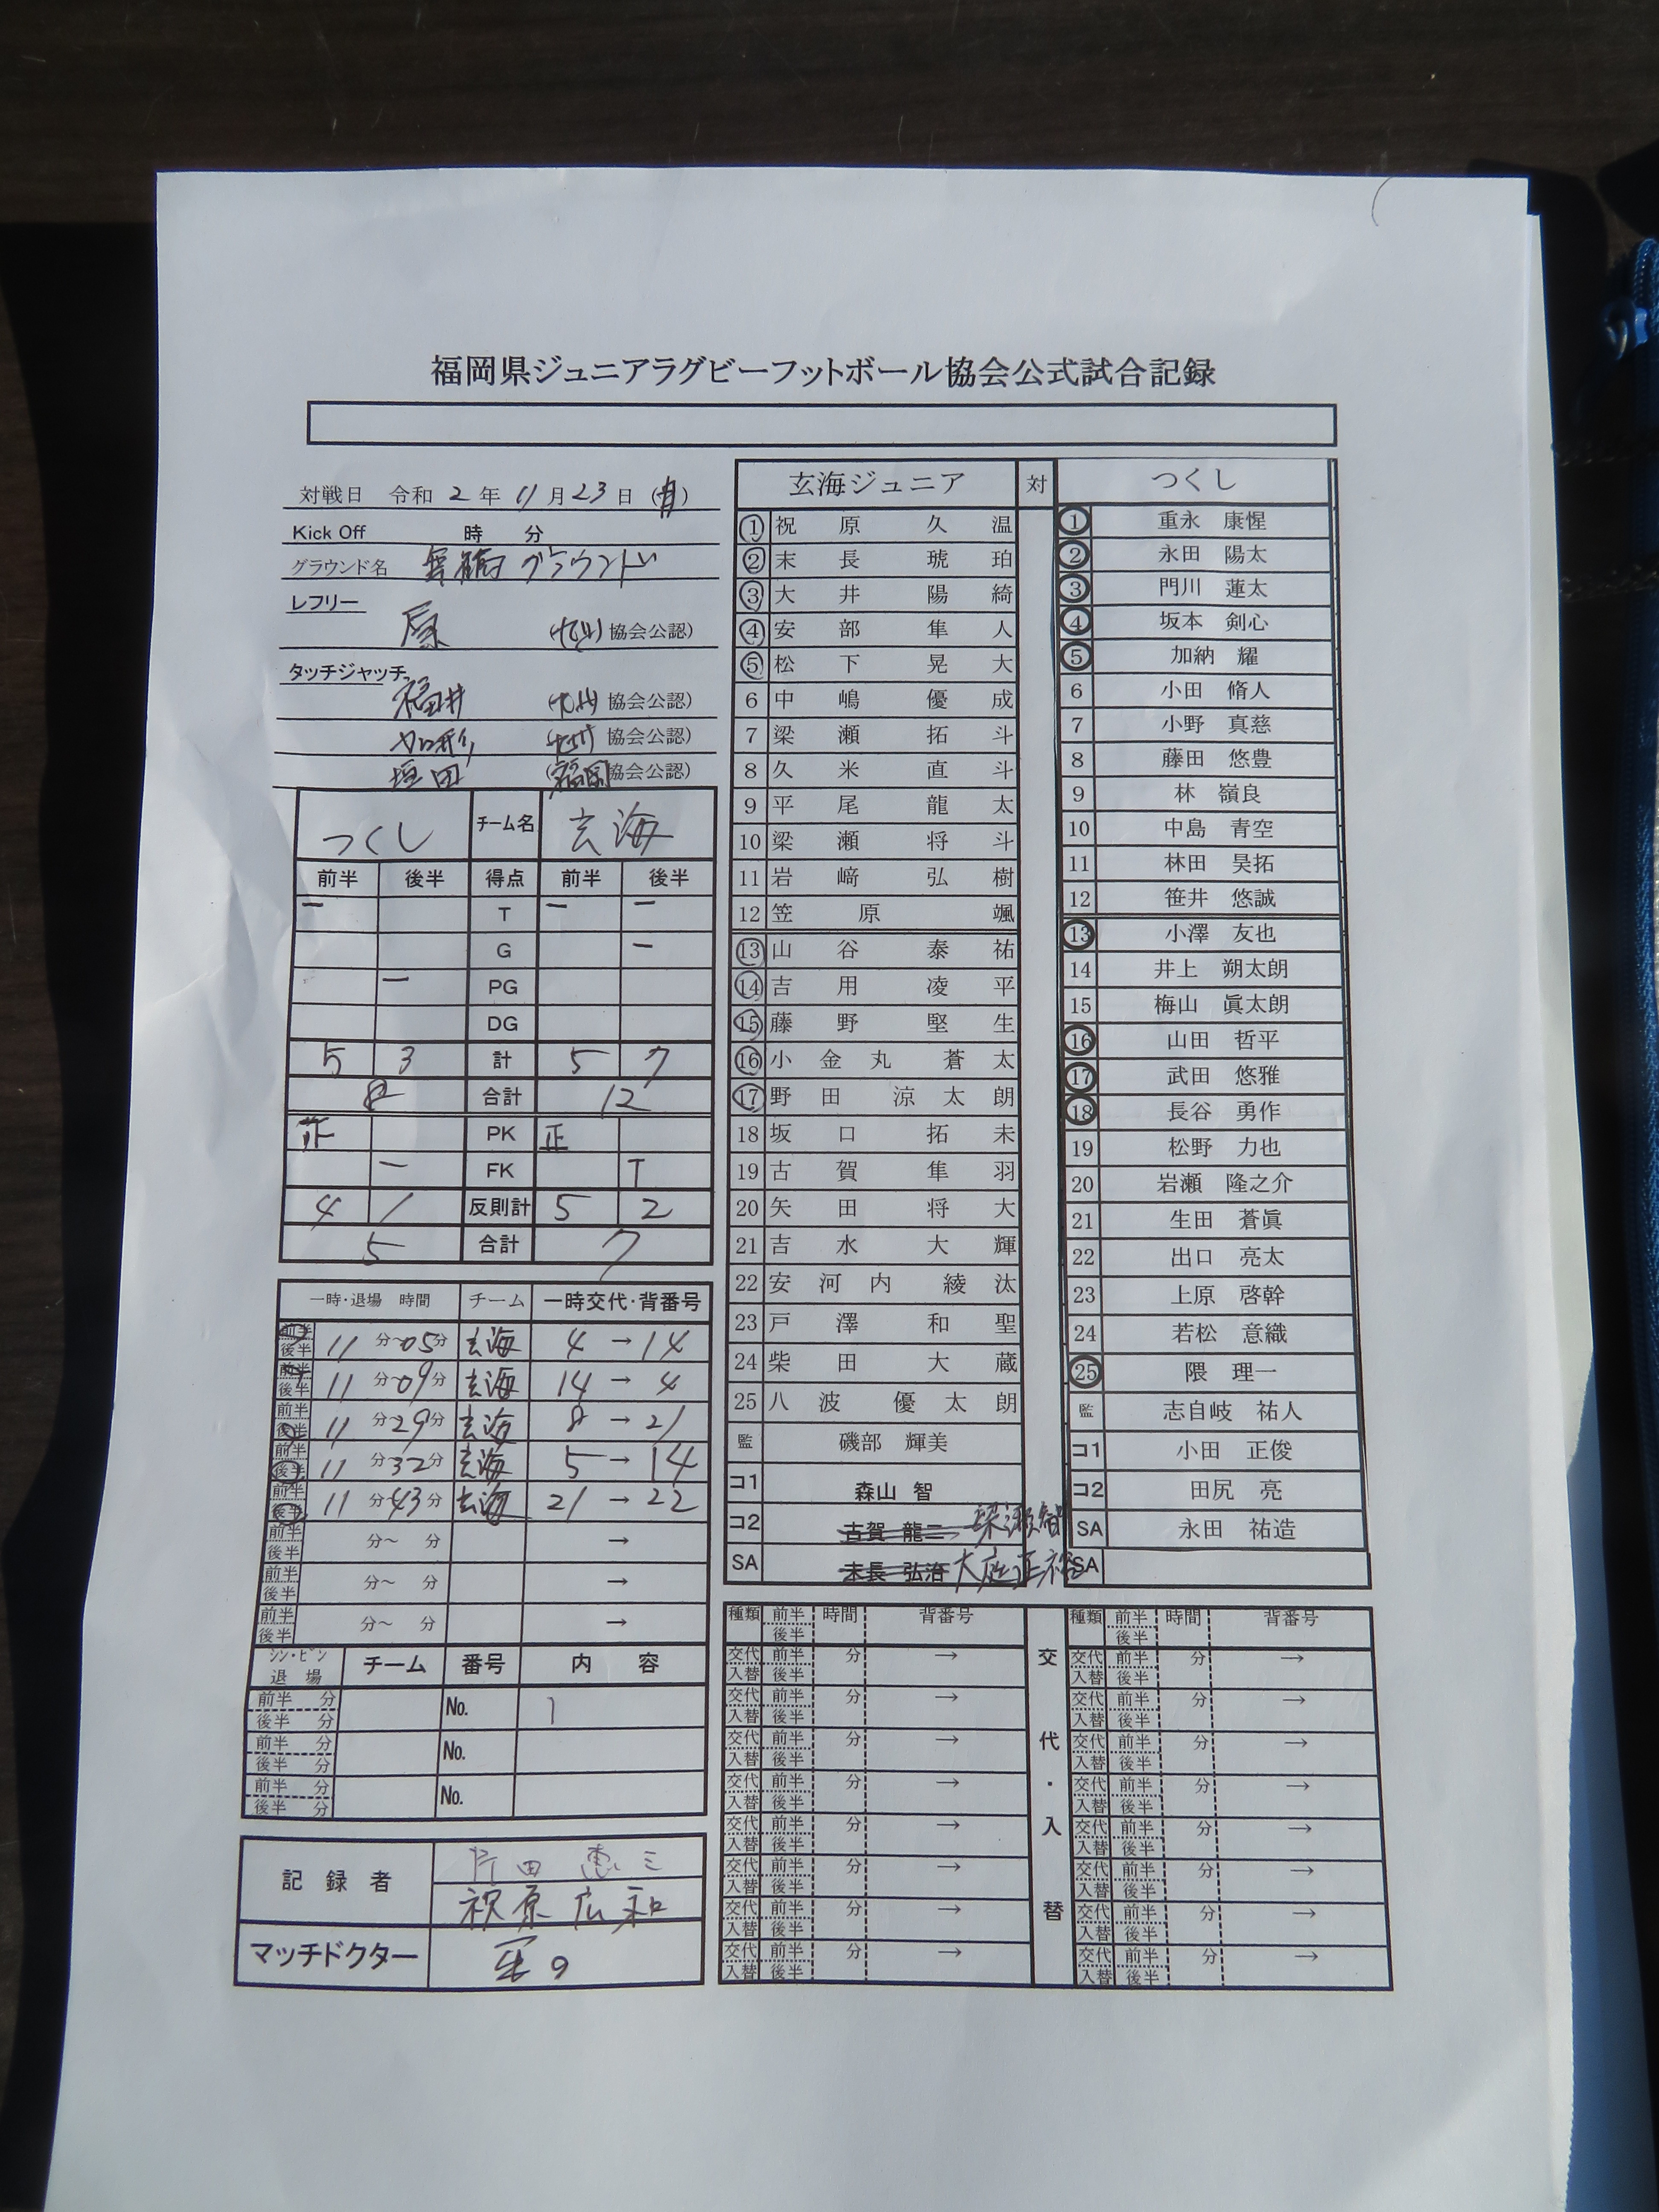 福岡県ジュニアラグビーフットボール協会公式試合記録
対戦日 令和 2 年 11 月 23 日 (月)
Kick Off 時 分
グラウンド名 グラウンド
レフリー 原 (九州 協会公認)
タッチジャッチ
福井 (九州 協会公認)
(九州 協会公認)
垣田 (福岡 協会公認)
つくし チーム名 玄海
前半 後半 得点 前半 後半
一 T 一 一
G 一
一 PG
DG
5 3 計 5 7
8 合計 12
正 PK 正
一 FK T
4 1 反則計 5 2
5 合計 7
一時・退場 時間 チーム 一時交代・背番号
前半 後半 11 分~05分 玄海 4 → 14
前半 後半 11 分~09分 玄海 14 → 4
前半 後半 11 分~29分 玄海 8 → 21
前半 後半 11 分~32分 玄海 5 → 14
前半 後半 11 分~43分 玄海 21 → 22
前半 後半 分~ 分 →
前半 後半 分~ 分 →
前半 後半 分~ 分 →
シン・ビン 退場 チーム 番号 内 容
前半 分 後半 分 No.
前半 分 後半 分 No.
前半 分 後半 分 No.
記録者 片田 恵三
祝原 広和
マッチドクター
玄海ジュニア 対 つくし
① 祝原久温 ① 重永 康惺
② 末長琥珀 ② 永田 陽太
③ 大井陽綺 ③ 門川 蓮太
④ 安部隼人 ④ 坂本 剣心
⑤ 松下晃大 ⑤ 加納 耀
6 中嶋優成 6 小田 脩人
7 梁瀬拓斗 7 小野 真慈
8 久米直斗 8 藤田 悠豊
9 平尾龍太 9 林 嶺良
10 梁瀬将斗 10 中島 青空
11 岩﨑弘樹 11 林田 昊拓
12 笠原颯 12 笹井 悠誠
⑬ 山谷泰祐 ⑬ 小澤 友也
⑭ 吉用凌平 14 井上 朔太朗
⑮ 藤野堅生 15 梅山 眞太朗
⑯ 小金丸蒼太 ⑯ 山田 哲平
⑰ 野田涼太朗 ⑰ 武田 悠雅
18 坂口拓未 ⑱ 長谷 勇作
19 古賀隼羽 19 松野 力也
20 矢田将大 20 岩瀬 隆之介
21 吉水大輝 21 生田 蒼眞
22 安河内綾汰 22 出口 亮太
23 戸澤和聖 23 上原 啓幹
24 柴田大蔵 24 若松 意織
25 八波優太朗 ㉕ 隈 理一
監 磯部 輝美 監 志自岐 祐人
コ1 森山 智 コ1 小田 正俊
コ2 古賀 龍二 梁瀬智 コ2 田尻 亮
SA 末長 弘治 大庭正裕 SA 永田 祐造
SA
種類 前半 後半 時間 背番号 交代・入替 種類 前半 後半 時間 背番号
交代 入替 前半 後半 分 → 交代 入替 前半 後半 分 →
交代 入替 前半 後半 分 → 交代 入替 前半 後半 分 →
交代 入替 前半 後半 分 → 交代 入替 前半 後半 分 →
交代 入替 前半 後半 分 → 交代 入替 前半 後半 分 →
交代 入替 前半 後半 分 → 交代 入替 前半 後半 分 →
交代 入替 前半 後半 分 → 交代 入替 前半 後半 分 →
交代 入替 前半 後半 分 → 交代 入替 前半 後半 分 →
交代 入替 前半 後半 分 → 交代 入替 前半 後半 分 →